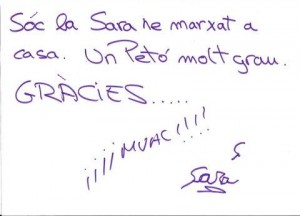 Sóc la Sara he marxat a
casa. Un Petó molt grau.
GRÀCIES.....
¡¡¡¡MUAC!!!!
Sara